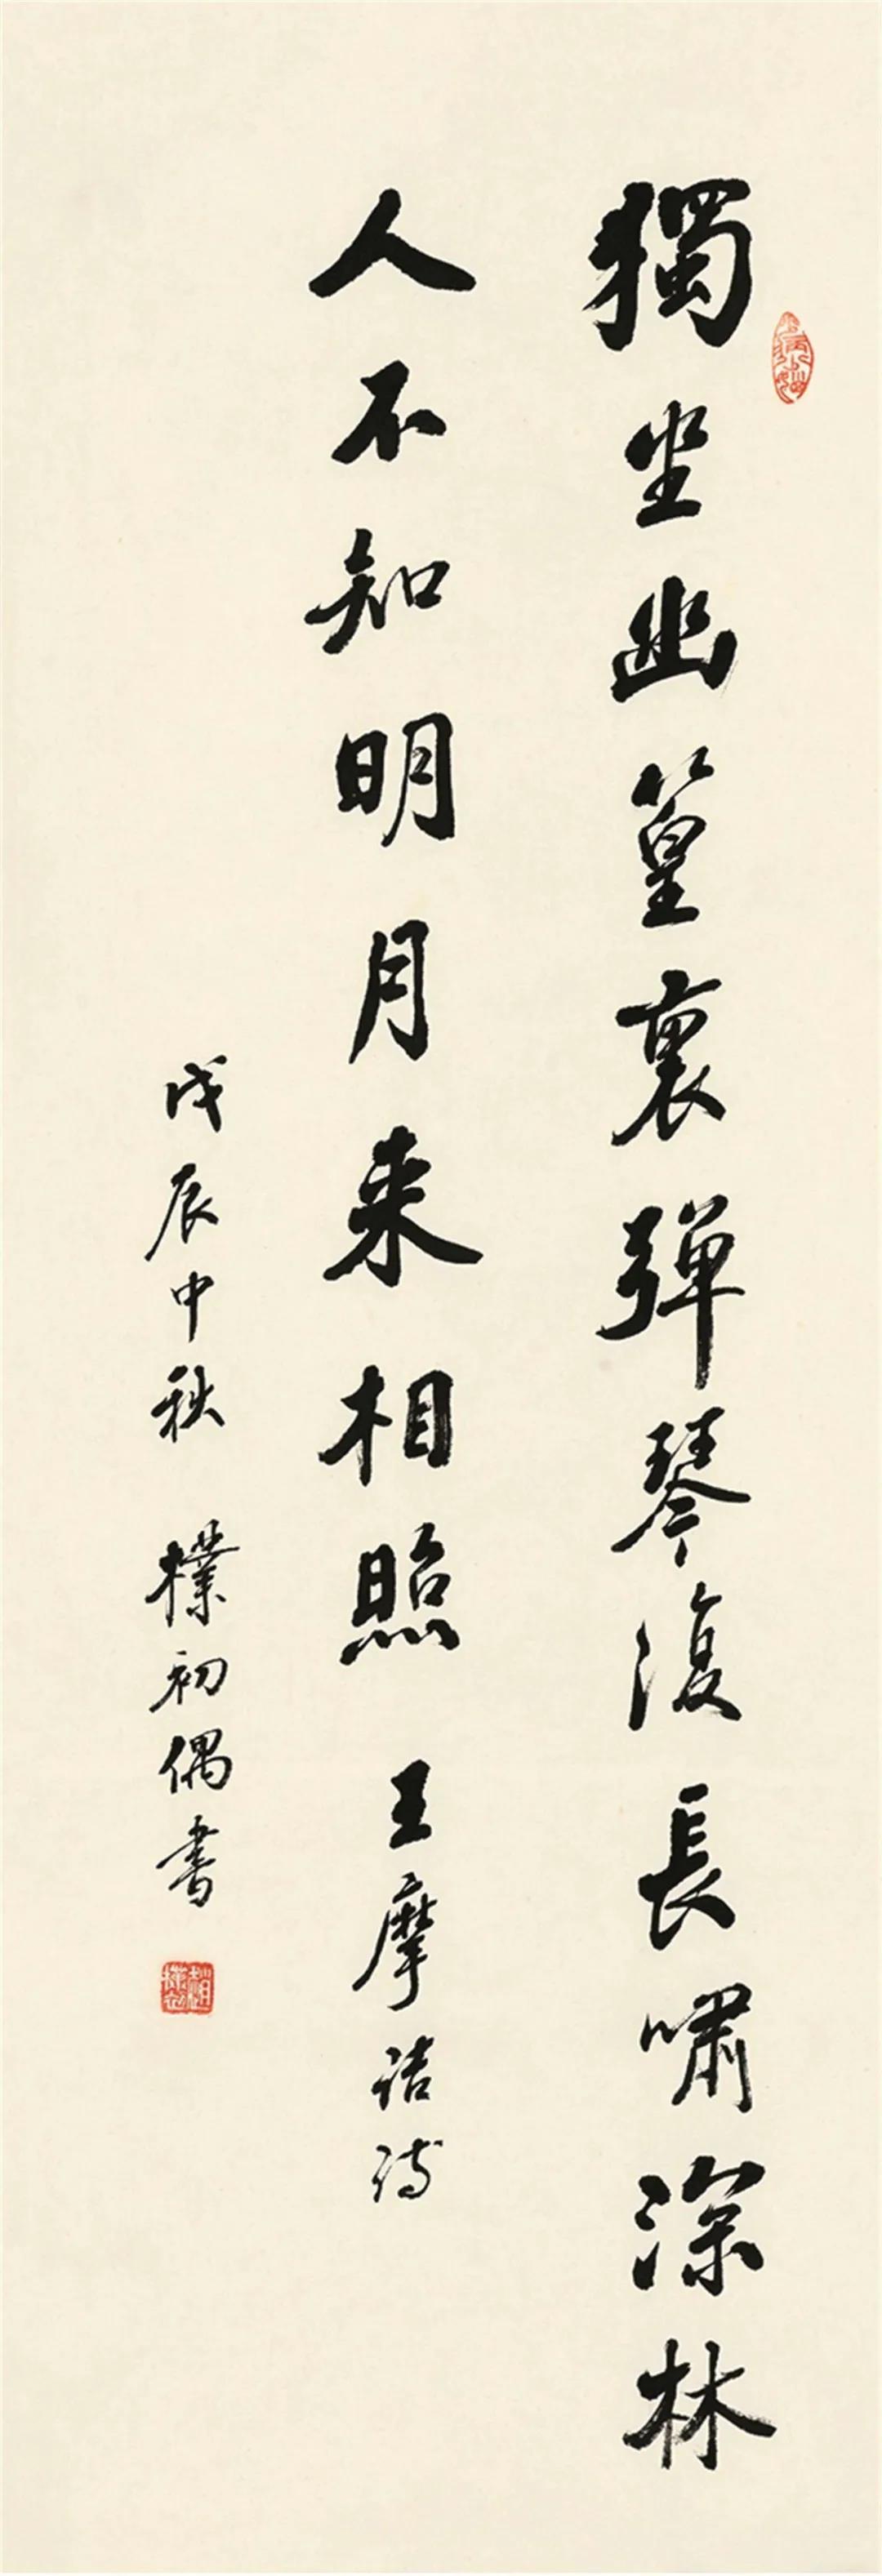 獨坐幽篁裏弹琴復長嘯深林
人不知明月来相照 王摩诘诗
戊辰中秋 樸初偶書
趙樸初